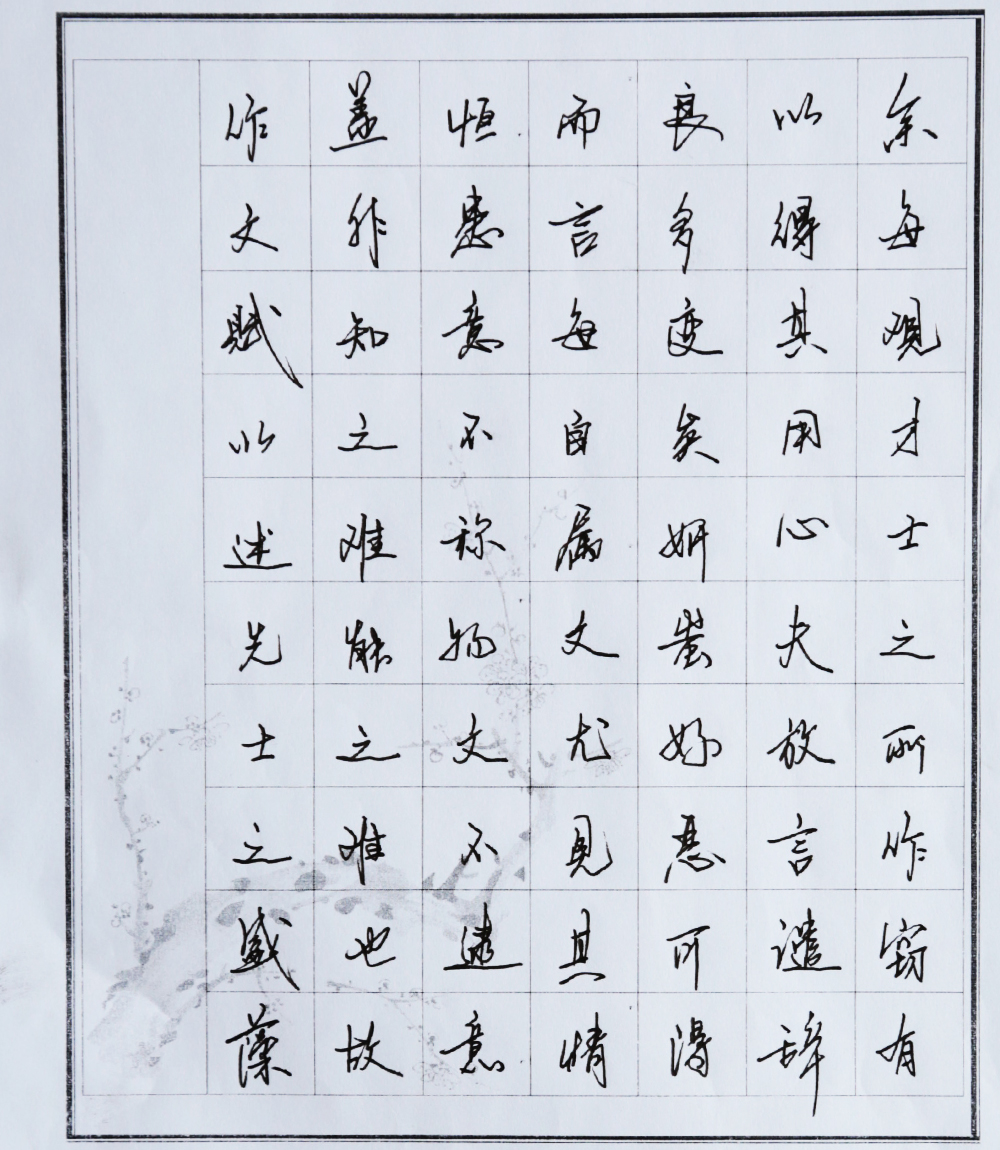 余每观才士之所作窃有
以得其用心夫放言谴辞
良多变矣妍蚩好恶可得
而言每自属文尤见其情
恒患意不称物文不逮意
盖非知之难能之难也故
作文赋以述先士之盛藻